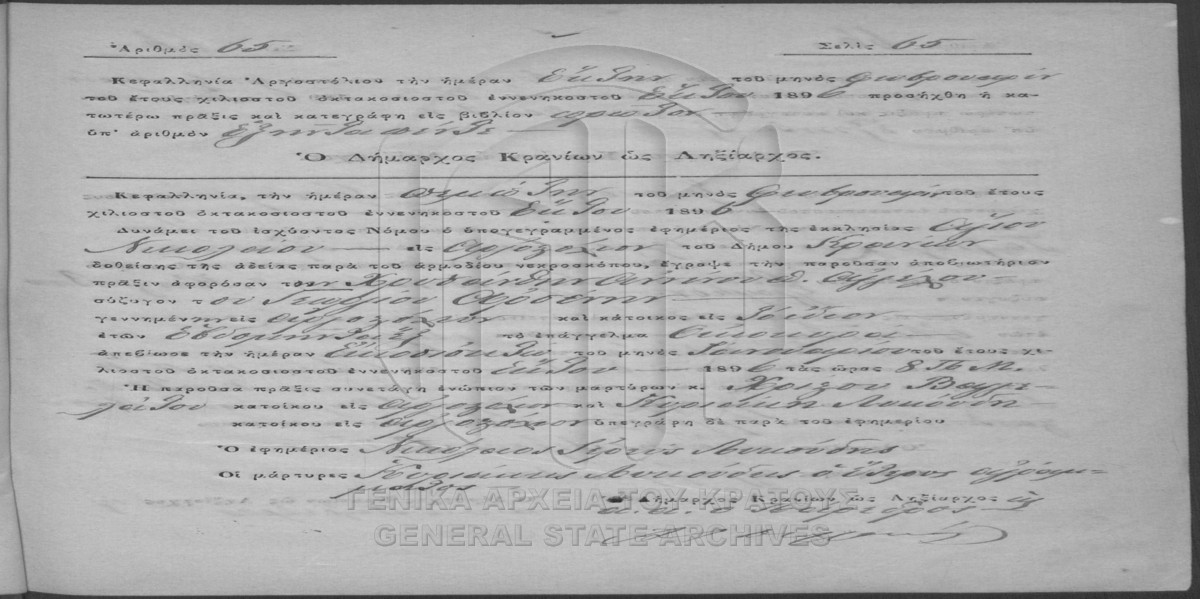 Ἀριθμὸς 65 Σελὶς 65
Κεφαλληνία Ἀργοστόλιον τὴν ἡμέραν Ἕκτην τοῦ μηνὸς Φεβρουαρίου
τοῦ ἔτους χιλιοστοῦ ὀκτακοσιοστοῦ ἐννενηκοστοῦ ἕκτου 1896 προσήχθη ἡ κα-
τωτέρω πρᾶξις καὶ κατεγράφη εἰς βιβλίον πρῶτον
ὑπ' ἀριθμὸν ἑξήντα πέντε
Ὁ Δήμαρχος Κρανίων ὡς Ληξίαρχος.
Κεφαλληνία, τὴν ἡμέραν πέμπτην τοῦ μηνὸς Φεβρουαρίου τοῦ ἔτους
χιλιοστοῦ ὀκτακοσιοστοῦ ἐννενηκοστοῦ ἕκτου 1896
Δυνάμει τοῦ ἰσχύοντος Νόμου ὁ ὑπογεγραμμένος ἐφημέριος τῆς ἐκκλησίας Ἁγίου
Νικολάου εἰς Ἀργοστόλιον τοῦ Δήμου Κρανίων
δοθείσης τῆς ἀδείας παρὰ τοῦ ἁρμοδίου νεκροσκόπου, ἔγραψε τὴν παροῦσαν ἀποβιωτήριον
πρᾶξιν ἀφορῶσαν τὴν Χρυσάνθην
σύζυγον τοῦ Γεωργίου
γεννημένην εἰς Ἀργοστόλιον καὶ κάτοικος εἰς τὸ ἴδιον
ἐτῶν ἑβδομήντα ἓξ τὸ ἐπάγγελμα οἰκοκυρά
ἀπεβίωσε τὴν ἡμέραν εἰκοσιοκτὼ τοῦ μηνὸς Ἰανουαρίου τοῦ ἔτους χι-
λιοστοῦ ὀκτακοσιοστοῦ ἐννενηκοστοῦ ἕκτου 1896 τὰς ὥρας 8 Π.Μ.
Ἡ παροῦσα πρᾶξις συνετάγη ἐνώπιον τῶν μαρτύρων κ. Χρίστου Βαγγε-
λάτου κατοίκου εἰς Ἀργοστόλιον καὶ Κυριάκη Λυκούδη
κατοίκου εἰς Ἀργοστόλιον ὑπεγράφη δὲ παρὰ τοῦ ἐφημερίου
Ὁ ἐφημέριος Νικόλαος Ἱερεὺς Λυκούδης
Οἱ μάρτυρες Κυριάκης Λυκούδης ὁ ἕτερος ἀγράμ-
ματος
ΓΕΝΙΚΑ ΑΡΧΕΙΑ ΤΟΥ ΚΡΑΤΟΥΣ
Ὁ Δήμαρχος Κρανίων ὡς Ληξίαρχος
GENERAL STATE ARCHIVES